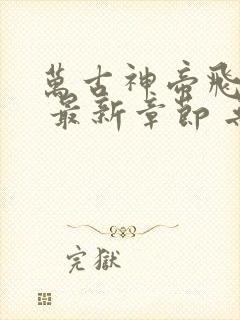 萬古神帝飛
最新章節
完獄